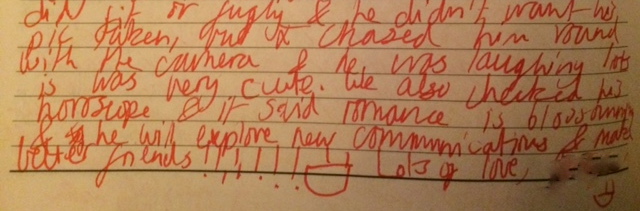 did it or fugly & he didn't want his
pic taken, but I chased him round
with the camera & he was laughing lots
is was very cute. We also checked his
horoscope & it said romance is blossoming
& he will explore new communications & make
better friends !!!!!!! Lots of love,